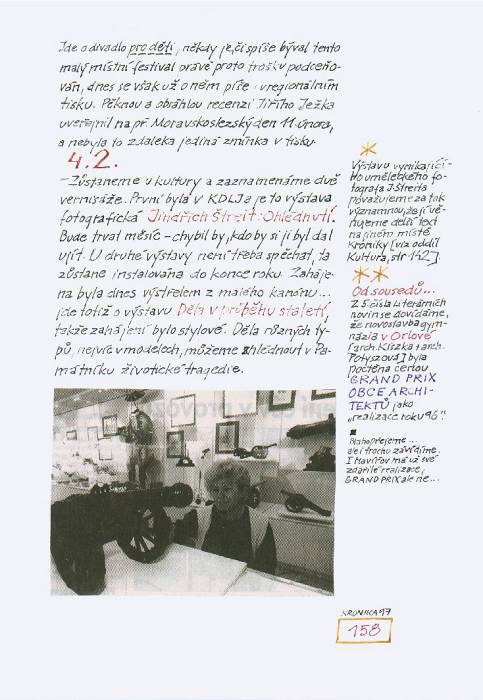 Jde o divadlo pro děti, někdy je, či spíše býval tento
malý místní festival právě proto trošku podceňo-
ván, dnes se však už o něm píše i v regionálním
tisku. Pěknou a obsáhlou recenzi Jiřího Ježka
uveřejnil na př. Moravskoslezský den 11. února,
a nebyla to zdaleka jediná zmínka v tisku.
4.2.
– Zůstaneme u kultury a zaznamenáme dvě
vernisáže. První byla v KDLJ a je to výstava
fotografická Jindřich Štreit: Ohlédnutí.
Bude trvat měsíc – chybil by, kdo by si ji byl dal
ujít. U druhé výstavy není třeba spěchat, ta
zůstane instalována do konce roku. Zaháje-
na byla dnes výstřelem z malého kanónu...
jde totiž o výstavu Děla v průběhu staletí,
takže zahájení bylo stylové. Děla různých ty-
pů, nejvíc v modelech, můžeme shlédnout v Pa-
mátníku životické tragedie.
Výstavu vynikající-
ho uměleckého fo-
tografa J. Štreita
považujeme za tak
významnou, že jí vě-
nujeme delší text
na jiném místě
Kroniky [viz oddíl
Kultura, str. 142].
Od sousedů...
Z 5. čísla Literárních
novin se dovídáme,
že novostavba gym-
názia v Orlové
[arch. Klizka + arch.
Potyszová] byla
poctěna cenou
GRAND PRIX
OBCE ARCHI-
TEKTŮ jako
„realizace roku 96."
Blahopřejeme...
ale i trochu závidíme.
I Havířov má už své
zdařilé realizace,
GRAND PRIX ale ne...
KRONIKA 97
158